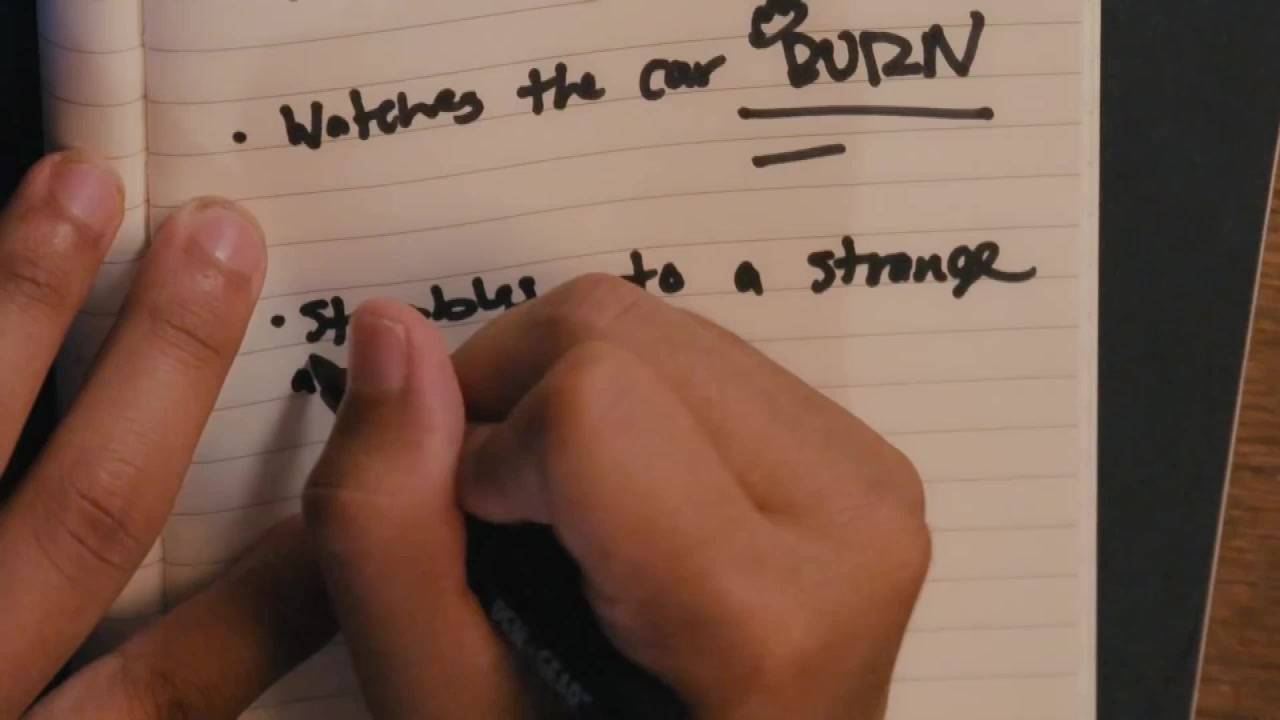 • Watches the car BURN
• St bles to a strange
a